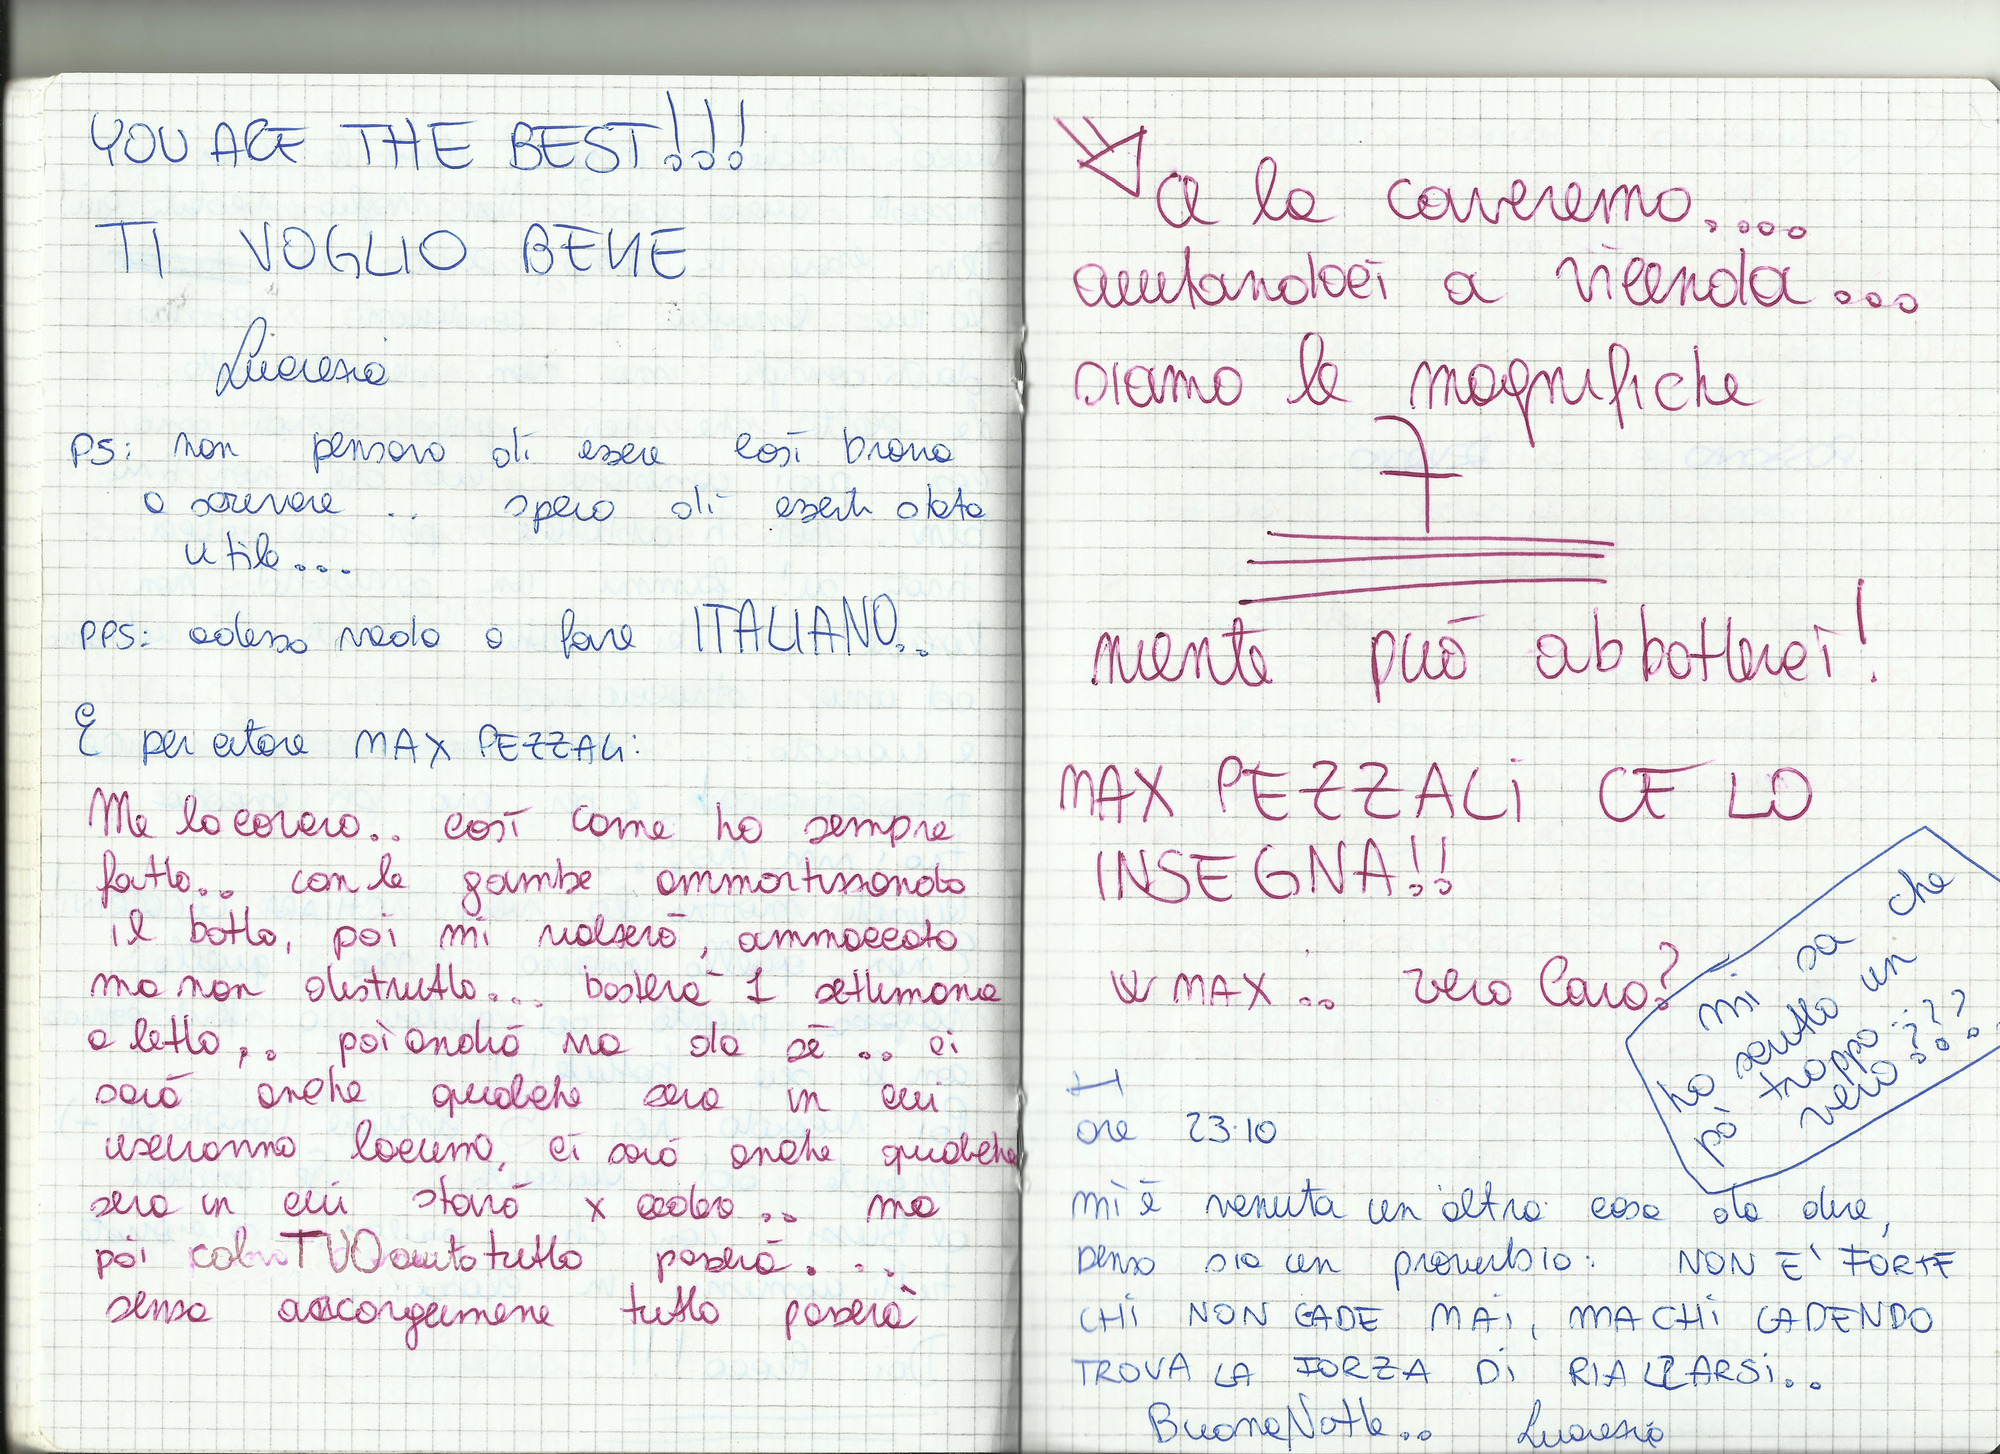 YOU ARE THE BEST!!!
TI VOGLIO BENE
Lucrezia
PS: non pensavo di essere così brava
a scrivere .. spero di esserti stata
utile...
PPS: adesso vado a fare ITALIANO..
E per citare MAX PEZZALI:
Me la caverò.. così come ho sempre
fatto.. con le gambe ammortizzando
il botto, poi mi rialzerò, ammaccato
ma non distrutto... basterà 1 settimana
a letto,.. poi andrò via da sé .. ci
sarà anche qualche sera in cui
usciranno lacrime, ci sarà anche qualche
sera in cui starò x cedere .. ma
poi col TUO aiuto tutto passerà. ...
senza accorgermene tutto passerà
Ce la caveremo....
aiutandoci a vicenda ...
siamo le magnifiche
7
niente può abbatterci!
MAX PEZZALI CE LO
INSEGNA!!
W MAX .. vero Caro?
mi sa che
ho scritto un
pò troppo ..
vero???
ore 23.10
mi è venuta un'altra cosa da dire,
penso sia un proverbio: NON E' FORTE
CHI NON CADE MAI, MA CHI CADENDO
TROVA LA FORZA DI RIALZARSI..
Buona Notte.. Lucrezia